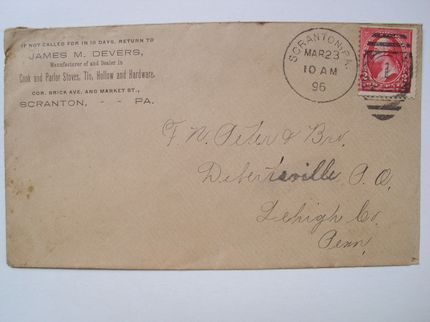 IF NOT CALLED FOR IN 10 DAYS, RETURN TO
JAMES M. DEVERS,
Manufacturer of and Dealer in
Cook and Parlor Stoves, Tin, Hollow and Hardware.
COR. BRICK AVE. AND MARKET ST.,
SCRANTON, - - PA.
SCRANTON, PA.
MAR 23
10 AM
96
1
2 2
F. W. Peter & Bro.
Dibertsville P.O.
Lehigh Co.
Penn.